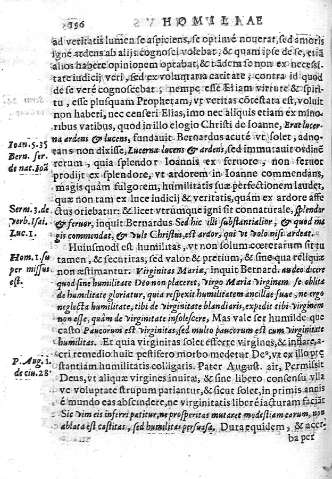 356 HOMILIAE
ad veritatis lumen se aspiciens, se optime nouerat, sed amoris
igne ardens ab alijs cognosci volebat, & quam ipse de se, etiã
alios habere opinionem optabat, & tãdem se non ex necessi-
tate iudicij veri, sed ex voluntaria caritate, contra id quod
de se verè cognoscebat, nempe esse Eliam virtute & spiri-
tu, esse plusquam Prophetam, vt veritas cõtestata est, voluit
non haberi, nec censeri Elias, imo nec aliquis etiam ex mino-
ribus vatibus, quod in illo elogio Christi de Ioanne, Erat lucer-
na ardens & lucens, fundauit. Bernardus acutè vt solet, adno-
tans non dixisse, Lucerna lucens & ardens, sed immutauit ordinẽ
rerum, quia splendor Ioannis ex feruore, non feruor
prodijt ex splendore, vt ardorem in Ioanne commendans,
magis quàm fulgorem, humilitatis suæ perfectionem laudet,
quæ non tam ex luce iudicij & veritatis, quàm ex ardore affe-
ctus oriebatur. & licet vtrumque igni sit connaturale, splendor
& feruor, inquit Bernardus
Huiusmodi est humilitas, vt non solum cœterarum sit tu-
tamen, & securitas, sed valor & pretium, & sine ea reliqui
non æstimantur. Virginitas Mariæ, inquit Bernard. audeo dicere
quod sine humilitate Deo non placeret, virgo Maria virginem se oblita
de humilitate gloriatur, quia respexit humilitatem ancillæ suæ, ne ergo
neglecta humilitate, tibi de virginitate blandiaris, expedit tibi virginem
non esse, quàm de virginitate insolescere, Mas vale ser humilde que
casto Paucorum est virginitas, sed multo paucorum est cum virginitate
humilitas. Et quia virginitas solet efferre virgines, & inflare, a-
cri remedio huic pestifero morbo medetur Deus, vt ex illo pt
stantiam humilitatis colligatis. Pater August. ait, Permisit
Deus, vt aliquæ virgines inuitæ, & sine libero consensu vllæ
ve voluptate strupum patiantur, & sicut solet, in primis animi
è mundo eas abscindere, ne virginitatis liberè iacturam faciãt
Sic vim eis inferri patitur, ne prosperitas mutaret modestiam earum, non
ablata est castitas, sed humilitas persuasa. Dura equidem, & acer-
ba per
Ioan. 5. 35
Bern. ser.
de nat. Ioã
Serm. 3. de
verb. Isai.
Luc. 1.
Hom. 1. su
per missus
est.
P. Aug. 1.
de ciu. 28.